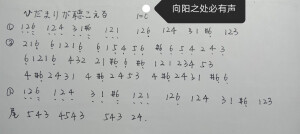 ひだまりが聴こえる 1=C
向阳之处必有声
① 126 124 31#6 121 126 124 31 #6 123
② 216 61216 6154 56 #6 54243
61216 432 21 #6 6 121 234 53
4 #6 2431 4 #6 243 4 #6 2431 #6 6
③ 126 124 31#6 121 126 124 31 #6 123
尾 543 4543 543 24.